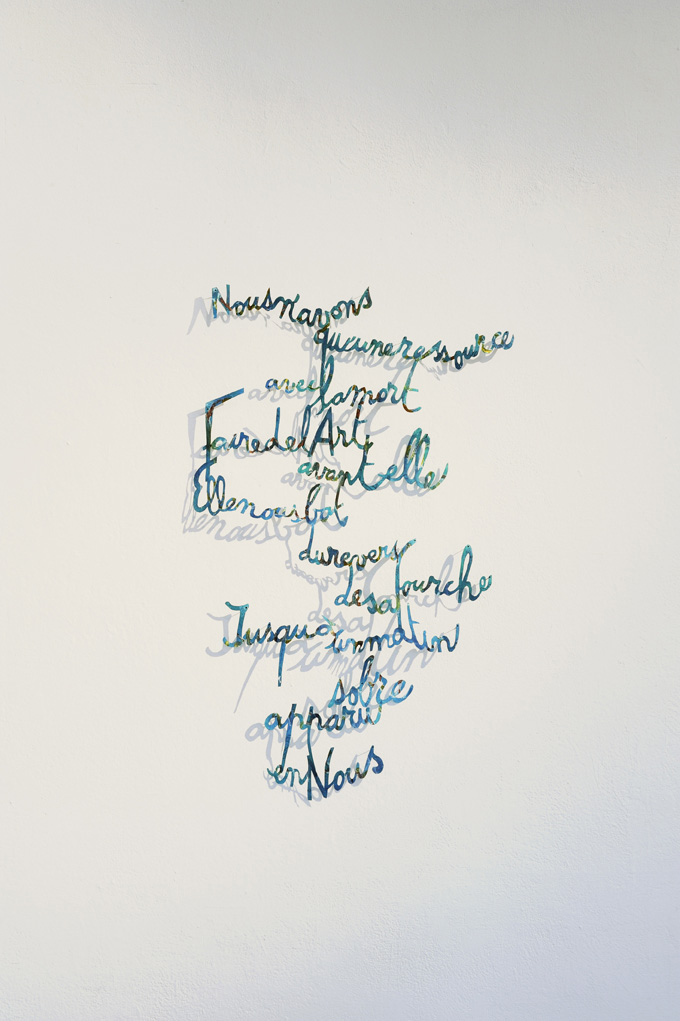 Nousn'avons
qu'uneressource
aveclamort
Fairedel'Art
avantelle
Ellenousbat
durevers
desafourche
Jusqu'à
unmatin
sobre
apparu
enNous